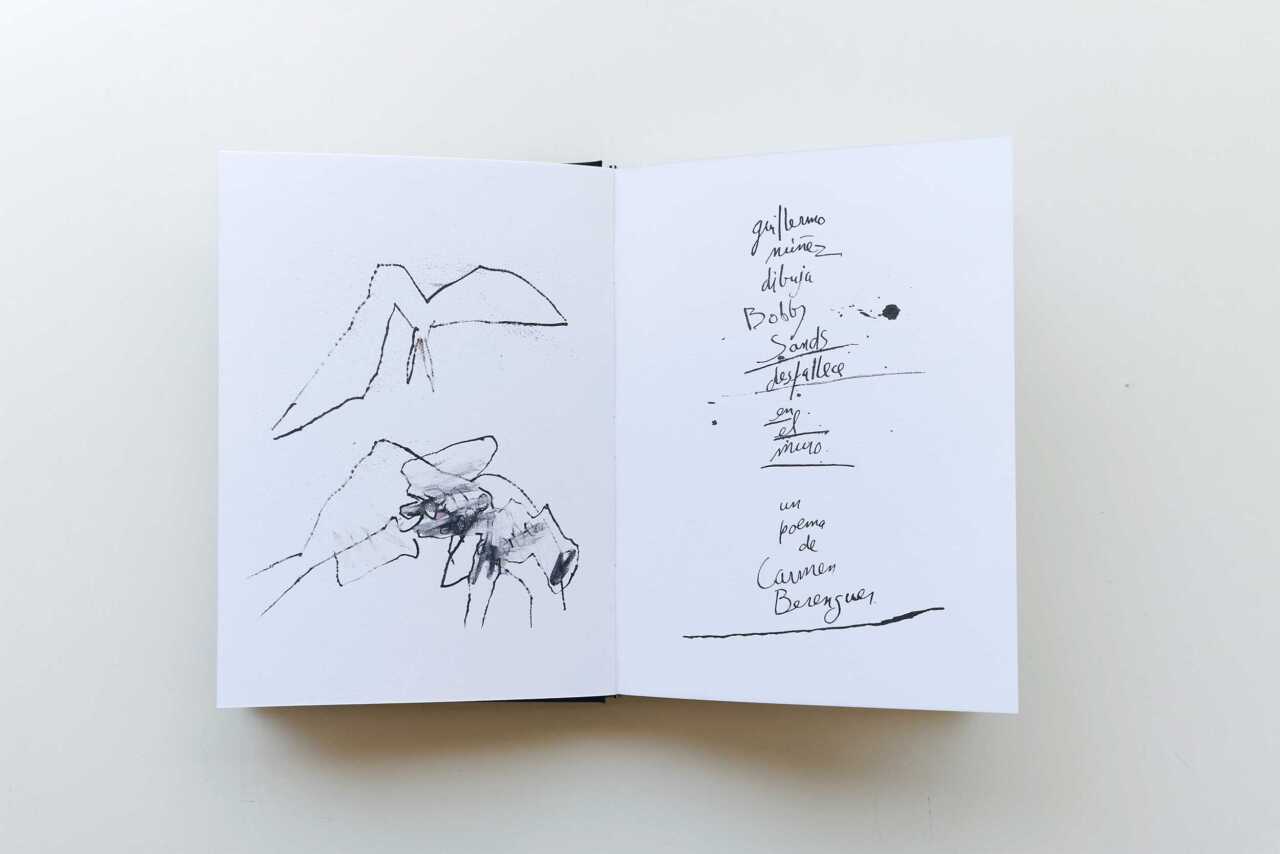 guillermo
núñez
dibuja
Bobby
Sands
desfallece
en
el
muro.
un
poema
de
Carmen
Berenguer.